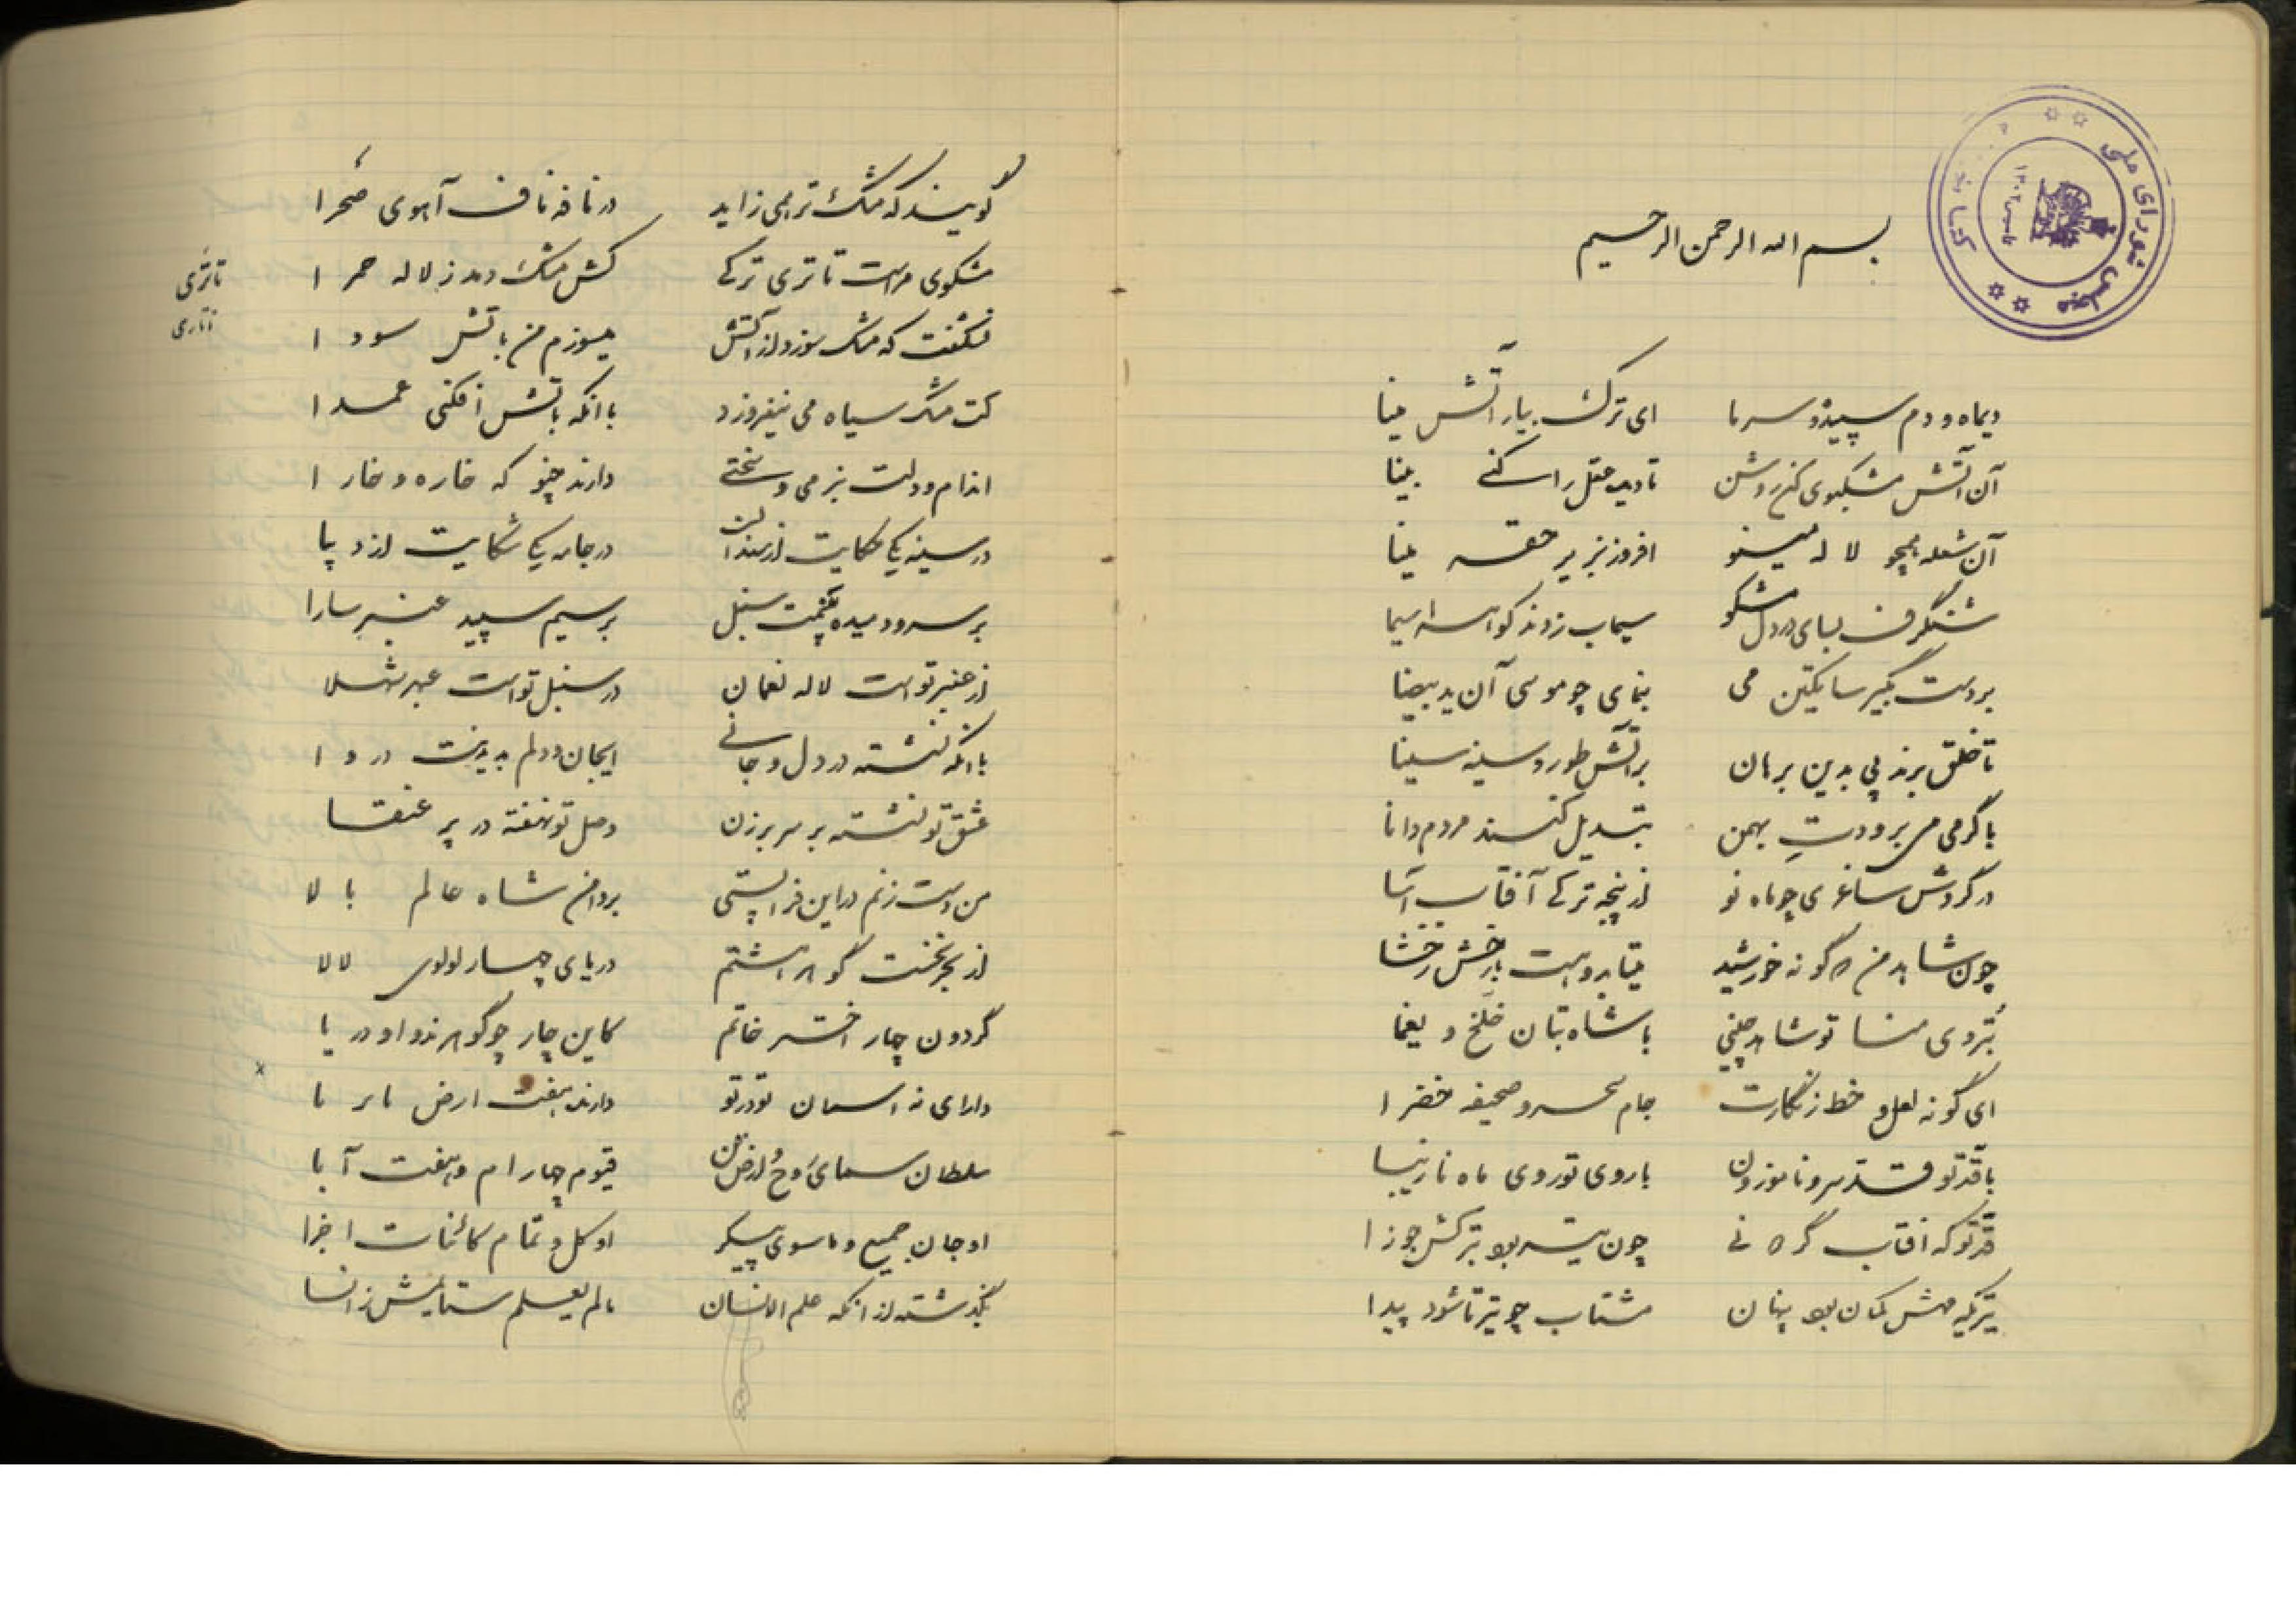 بسم الله الرحمن الرحیم
مجلس شورای ملی
دیماه و دم سپیده و سرما ای ترک بیار آتش مینا
آن آتش مشکبوی کن روشن تا دیده عقل را کنی بینا
آن شعله همچو لاله مینو افروز بزیر حقه مینا
شنگرف بسای در دل مشکو سیماب زدند کوه را سیما
بر دست بگیر ساتکین می بنمای چو موسی آن ید بیضا
تا خلق برند پی بدین برهان بر آتش طور و سینه سینا
با گرمی می برودتِ بهمن تبدیل کنند مردم دانا
در گردش ساغری چو ماه نو از پنجه ترکی آفتاب آسا
چون شاهد من که گونه خورشید میتابد و هست بارخش رخشا
بت روی منا تو شاهد چینی با شاه بتان خلخ و یغما
ای گونه لعل و خط زنگارت جام سحر و صحیفه خضرا
با قد تو قد سرو ناموزون با روی تو روی ماه نازیبا
قد تو که آفتاب گر نی چون تیر بود بترکش جوزا
تیریکه بکمان بود پنهان مشتاب چو تیر تا شود پیدا
گویند که مشک تر همی زاید در نافه ناف آهوی صحرا
مشکوی مراست تاتری ترکی کش مشک دمد ز لاله حمرا
تاتری
تتاری
نشگفت که مشک سوزد از آتش میسوزم من باتش سودا
کت مشک سیاه می نیفروزد با آنکه باتش افکنی عمدا
اندام و دلت بنرمی و سختی دارند چنو که خاره و خارا
در سینه یکی حکایت از سندان در جامه یکی شکایت از دیبا
بر سرو دمیده سنبل بر سیم سپید عنبر سارا
از عنبر تو است لاله نعمان در سنبل تو است عبهر شهلا
با آنکه نشسته در دل و جانی ایجان و دلم بدیدنت دروا
عشق تو نشسته بر سر برزن وصل تو نهفته در پر عنقا
من دست زنم در این فرا پستی بر دامن شاه عالم بالا
از بحر نخست گوهر هشتم دریای چهار لولوی لالا
گردون چار اختر خاتم کاین چار چو گوهرند و او دریا
دارای نه آسمان تو در تو دارنده هفت ارض تا بر تا
سلطان سمای روح و ارض تن قیوم چهار ام و هفت آبا
او جان جمیع و ماسوی پیکر او کل و تمام کائنات اجزا
بگذشته از آنکه علم الانسان مالم یعلم ستایش ز انسا